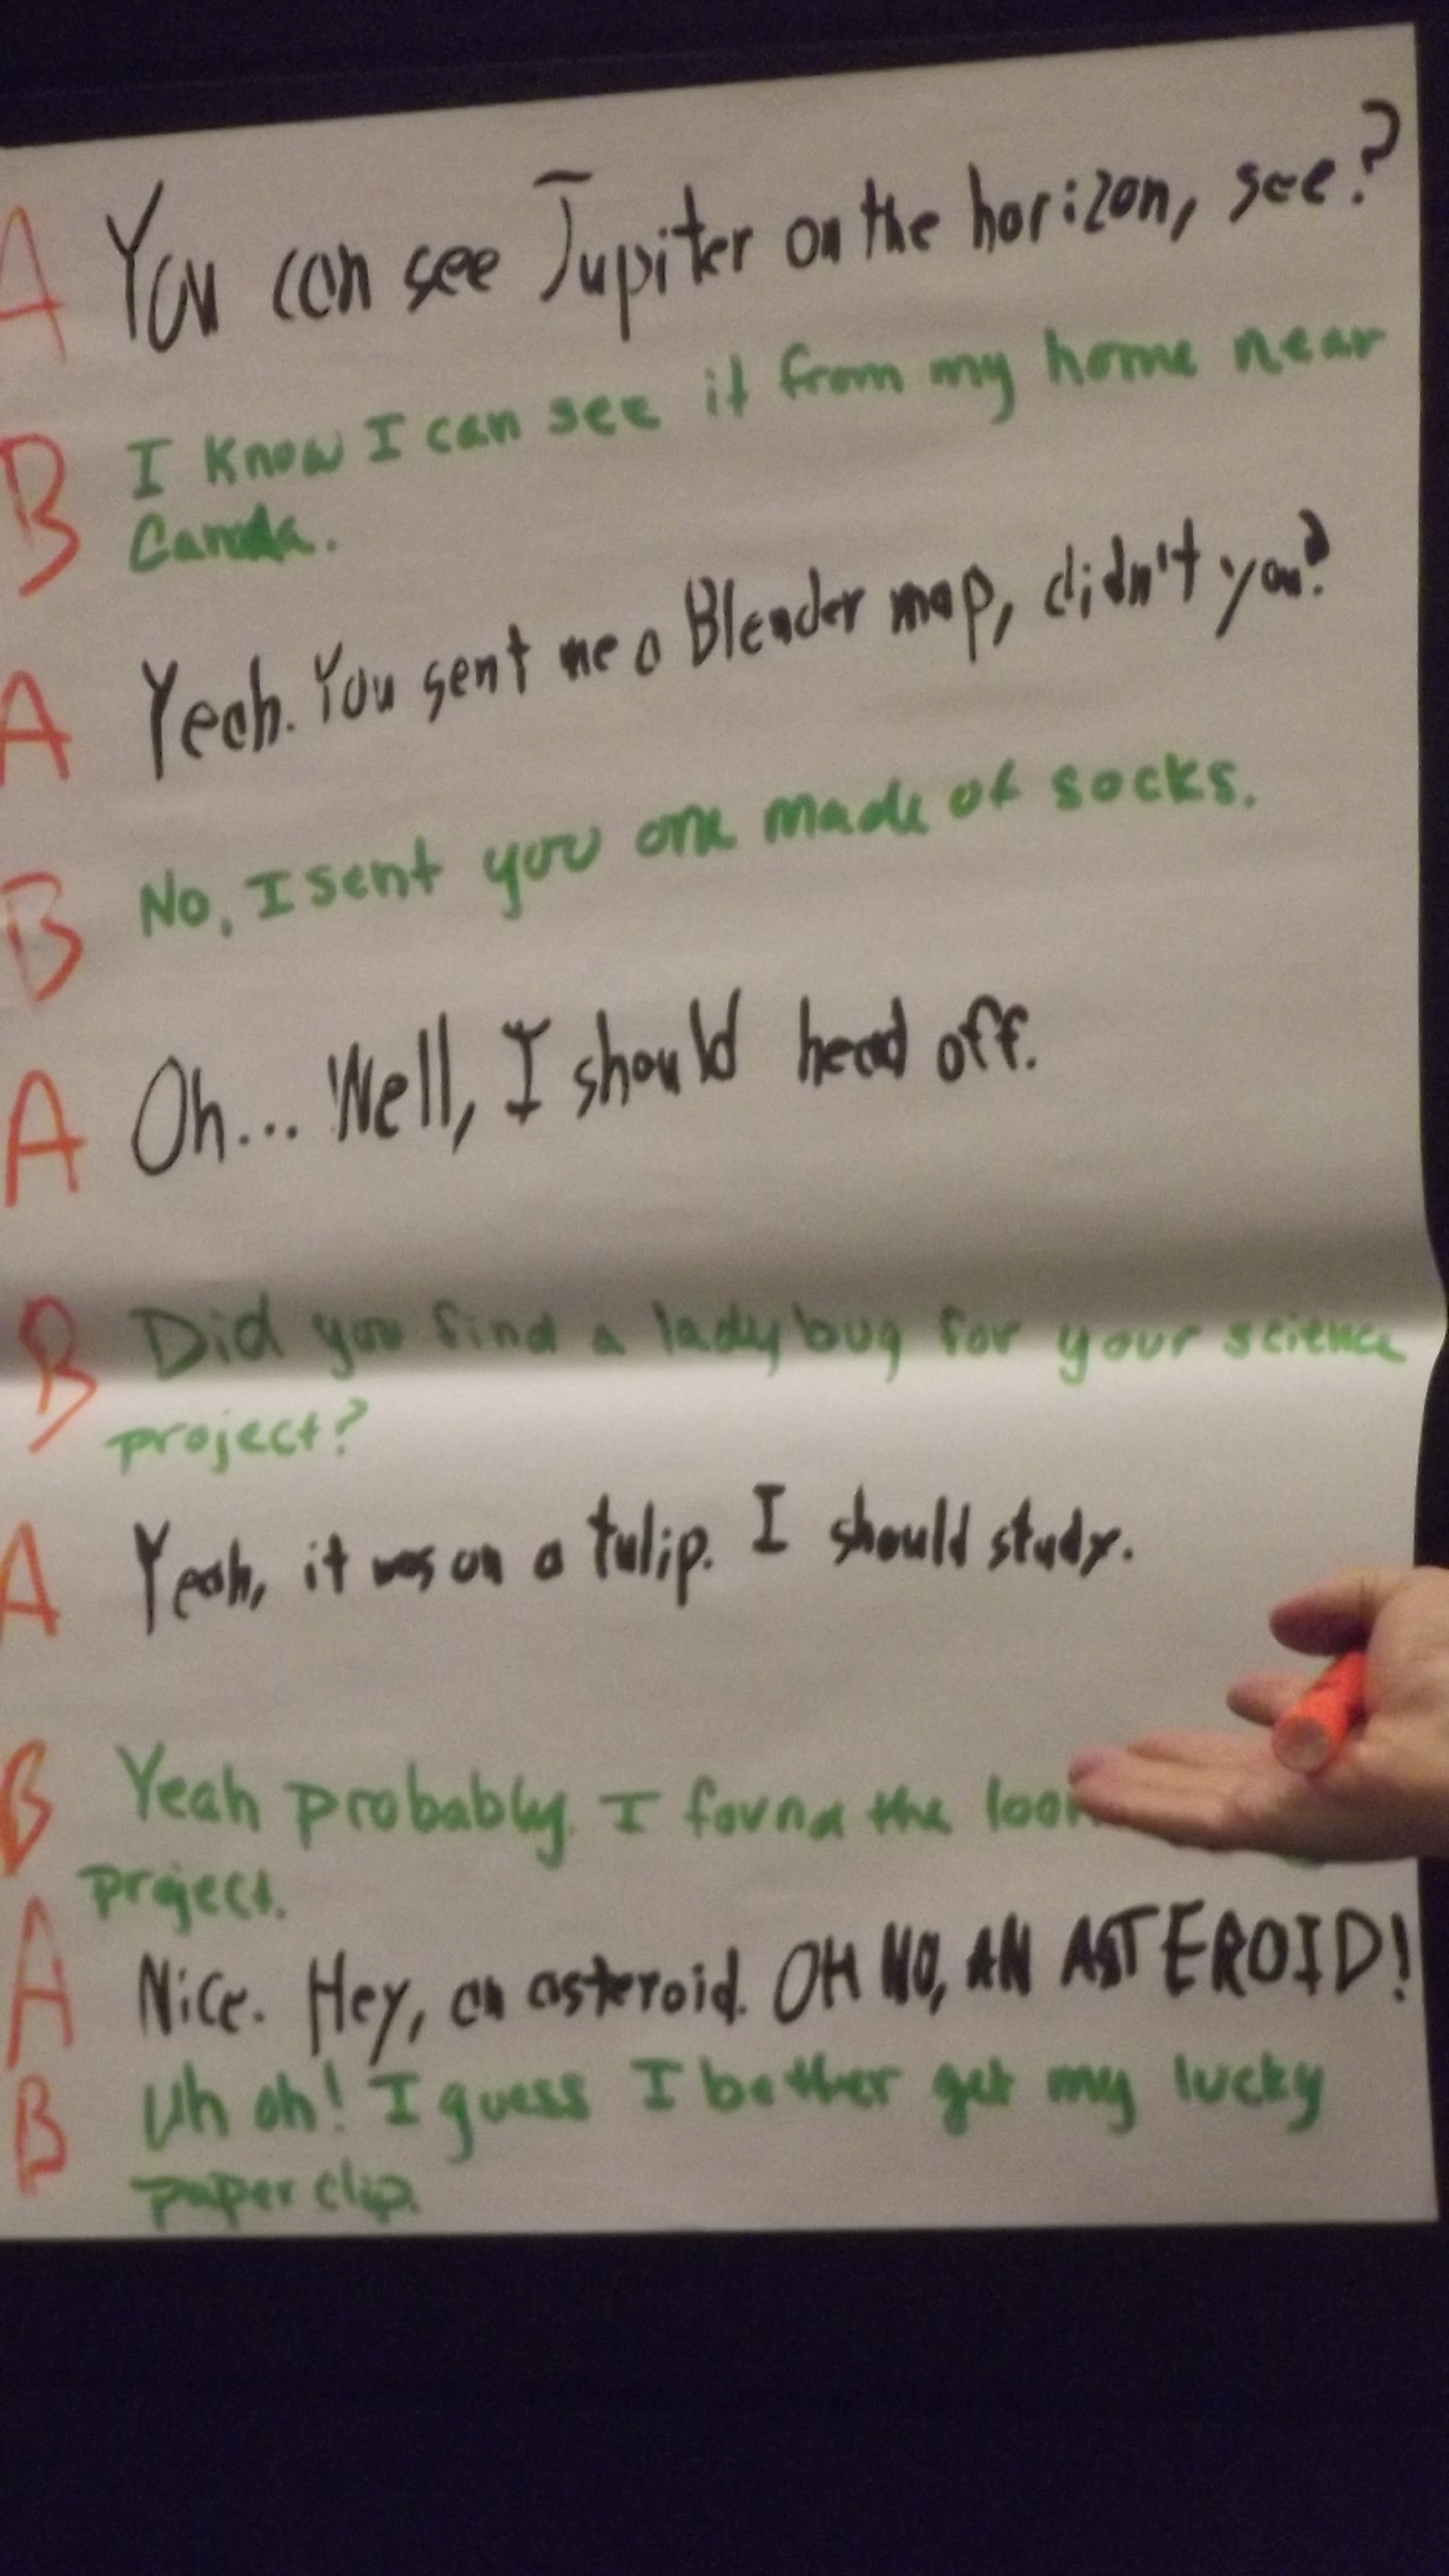 A You can see Jupiter on the horizon, see?
B I know I can see it from my home near
Canada.
A Yeah. You sent me a Blender map, didn't you?
B No, I sent you one made of socks.
A Oh... Well, I should head off.
B Did you find a ladybug for your science
project?
A Yeah, it was on a tulip. I should study.
B Yeah probably. I found the
project.
A Nice. Hey, an asteroid. OH NO, AN ASTEROID!
B Uh oh! I guess I better get my lucky
paper clip.